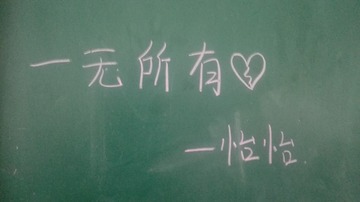 一无所有
一怡怡.